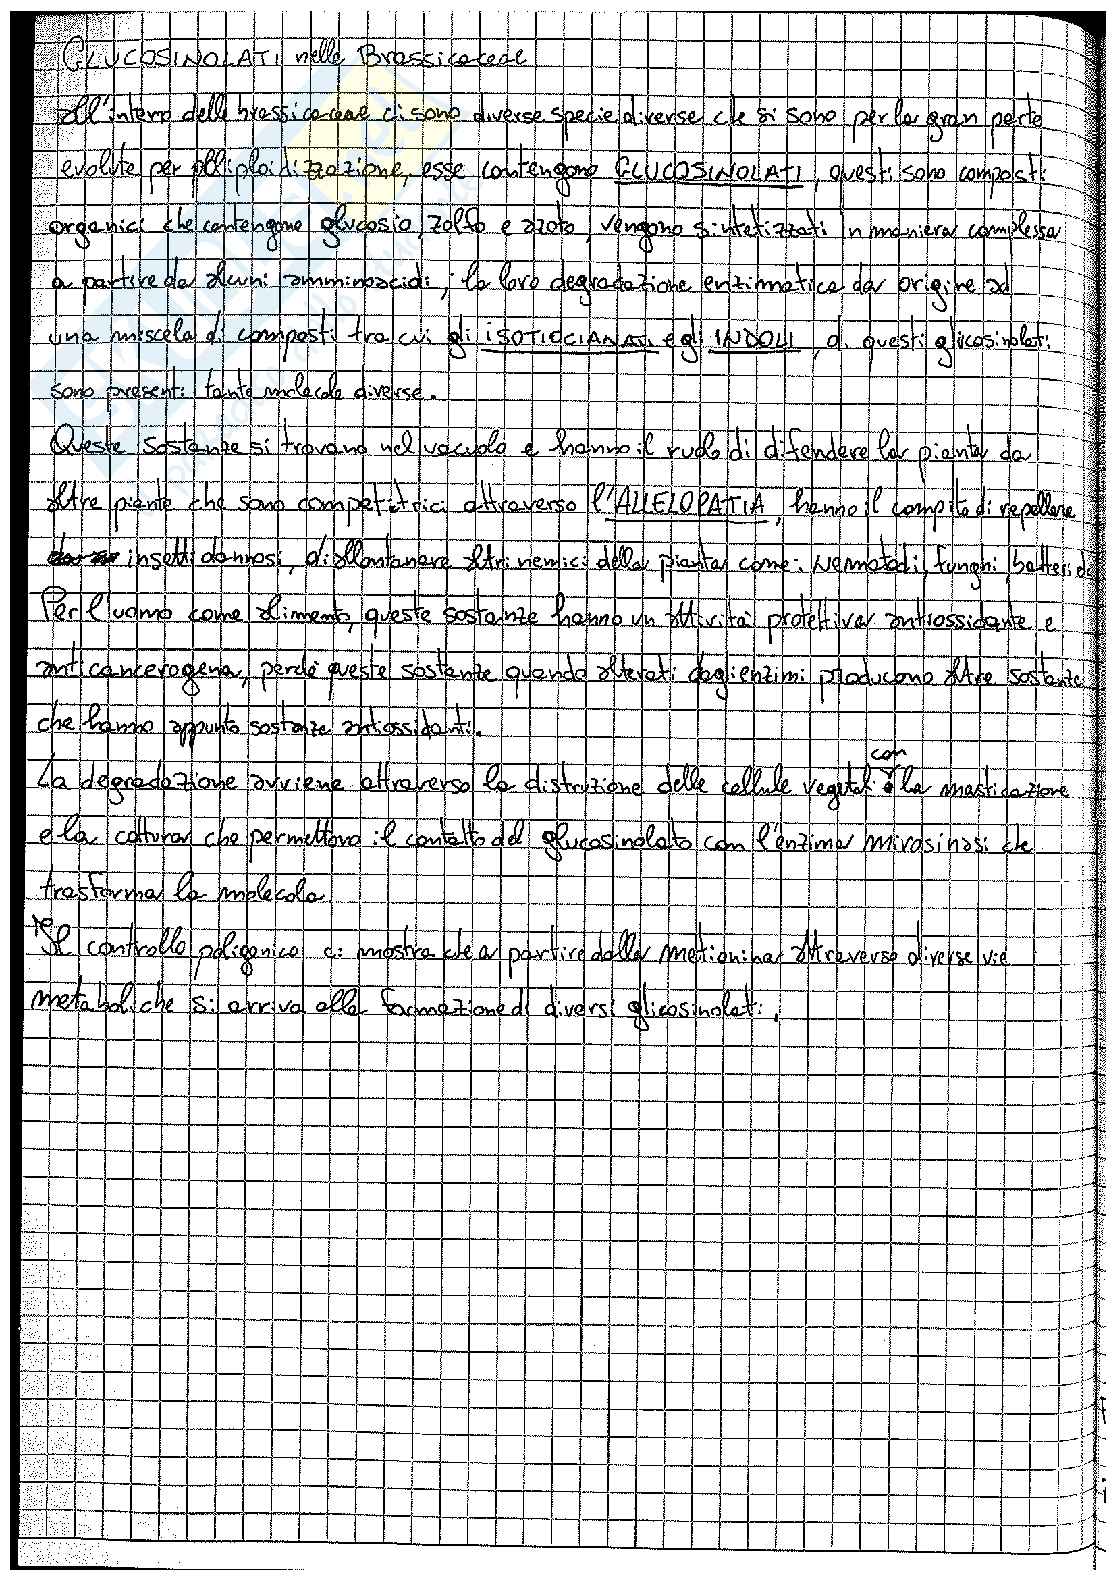 GLUCOSINOLATI nelle Brassicaceae
All'interno delle brassicaceae ci sono diverse specie diverse che si sono per la gran parte
evolute per poliploidizzazione, esse contengono GLUCOSINOLATI, questi sono composti
organici che contengono glucosio, zolfo e azoto, vengono sintetizzati in maniera complessa
a partire da alcuni amminoacidi; la loro degradazione enzimatica da origine ad
una miscela di composti tra cui gli ISOTIOCIANATI e gli INDOLI, di questi glicosinolati
sono presenti tante molecole diverse.
Queste sostanze si trovano nel vacuolo e hanno il ruolo di difendere la pianta da
altre piante che sono competitrici attraverso l'ALLELOPATIA, hanno il compito di repellere
insetti dannosi, di allontanare altri nemici della pianta come: Nematodi, funghi, batteri
Per l'uomo come alimento, queste sostanze hanno un attività protettiva antiossidante e
anticancerogena, perché queste sostanze quando alterati dagli enzimi producono altre sostanze
che hanno appunto sostanze antiossidanti.
La degradazione avviene attraverso la distruzione delle cellule vegetali con la masticazione
e la cottura che permettono il contatto del glucosinolato con l'enzima mirosinasi che
trasforma la molecola
Il controllo poligenico ci mostra che a partire dalla metionina attraverso diverse vie
metaboliche si arriva alla formazione di diversi glicosinolati.